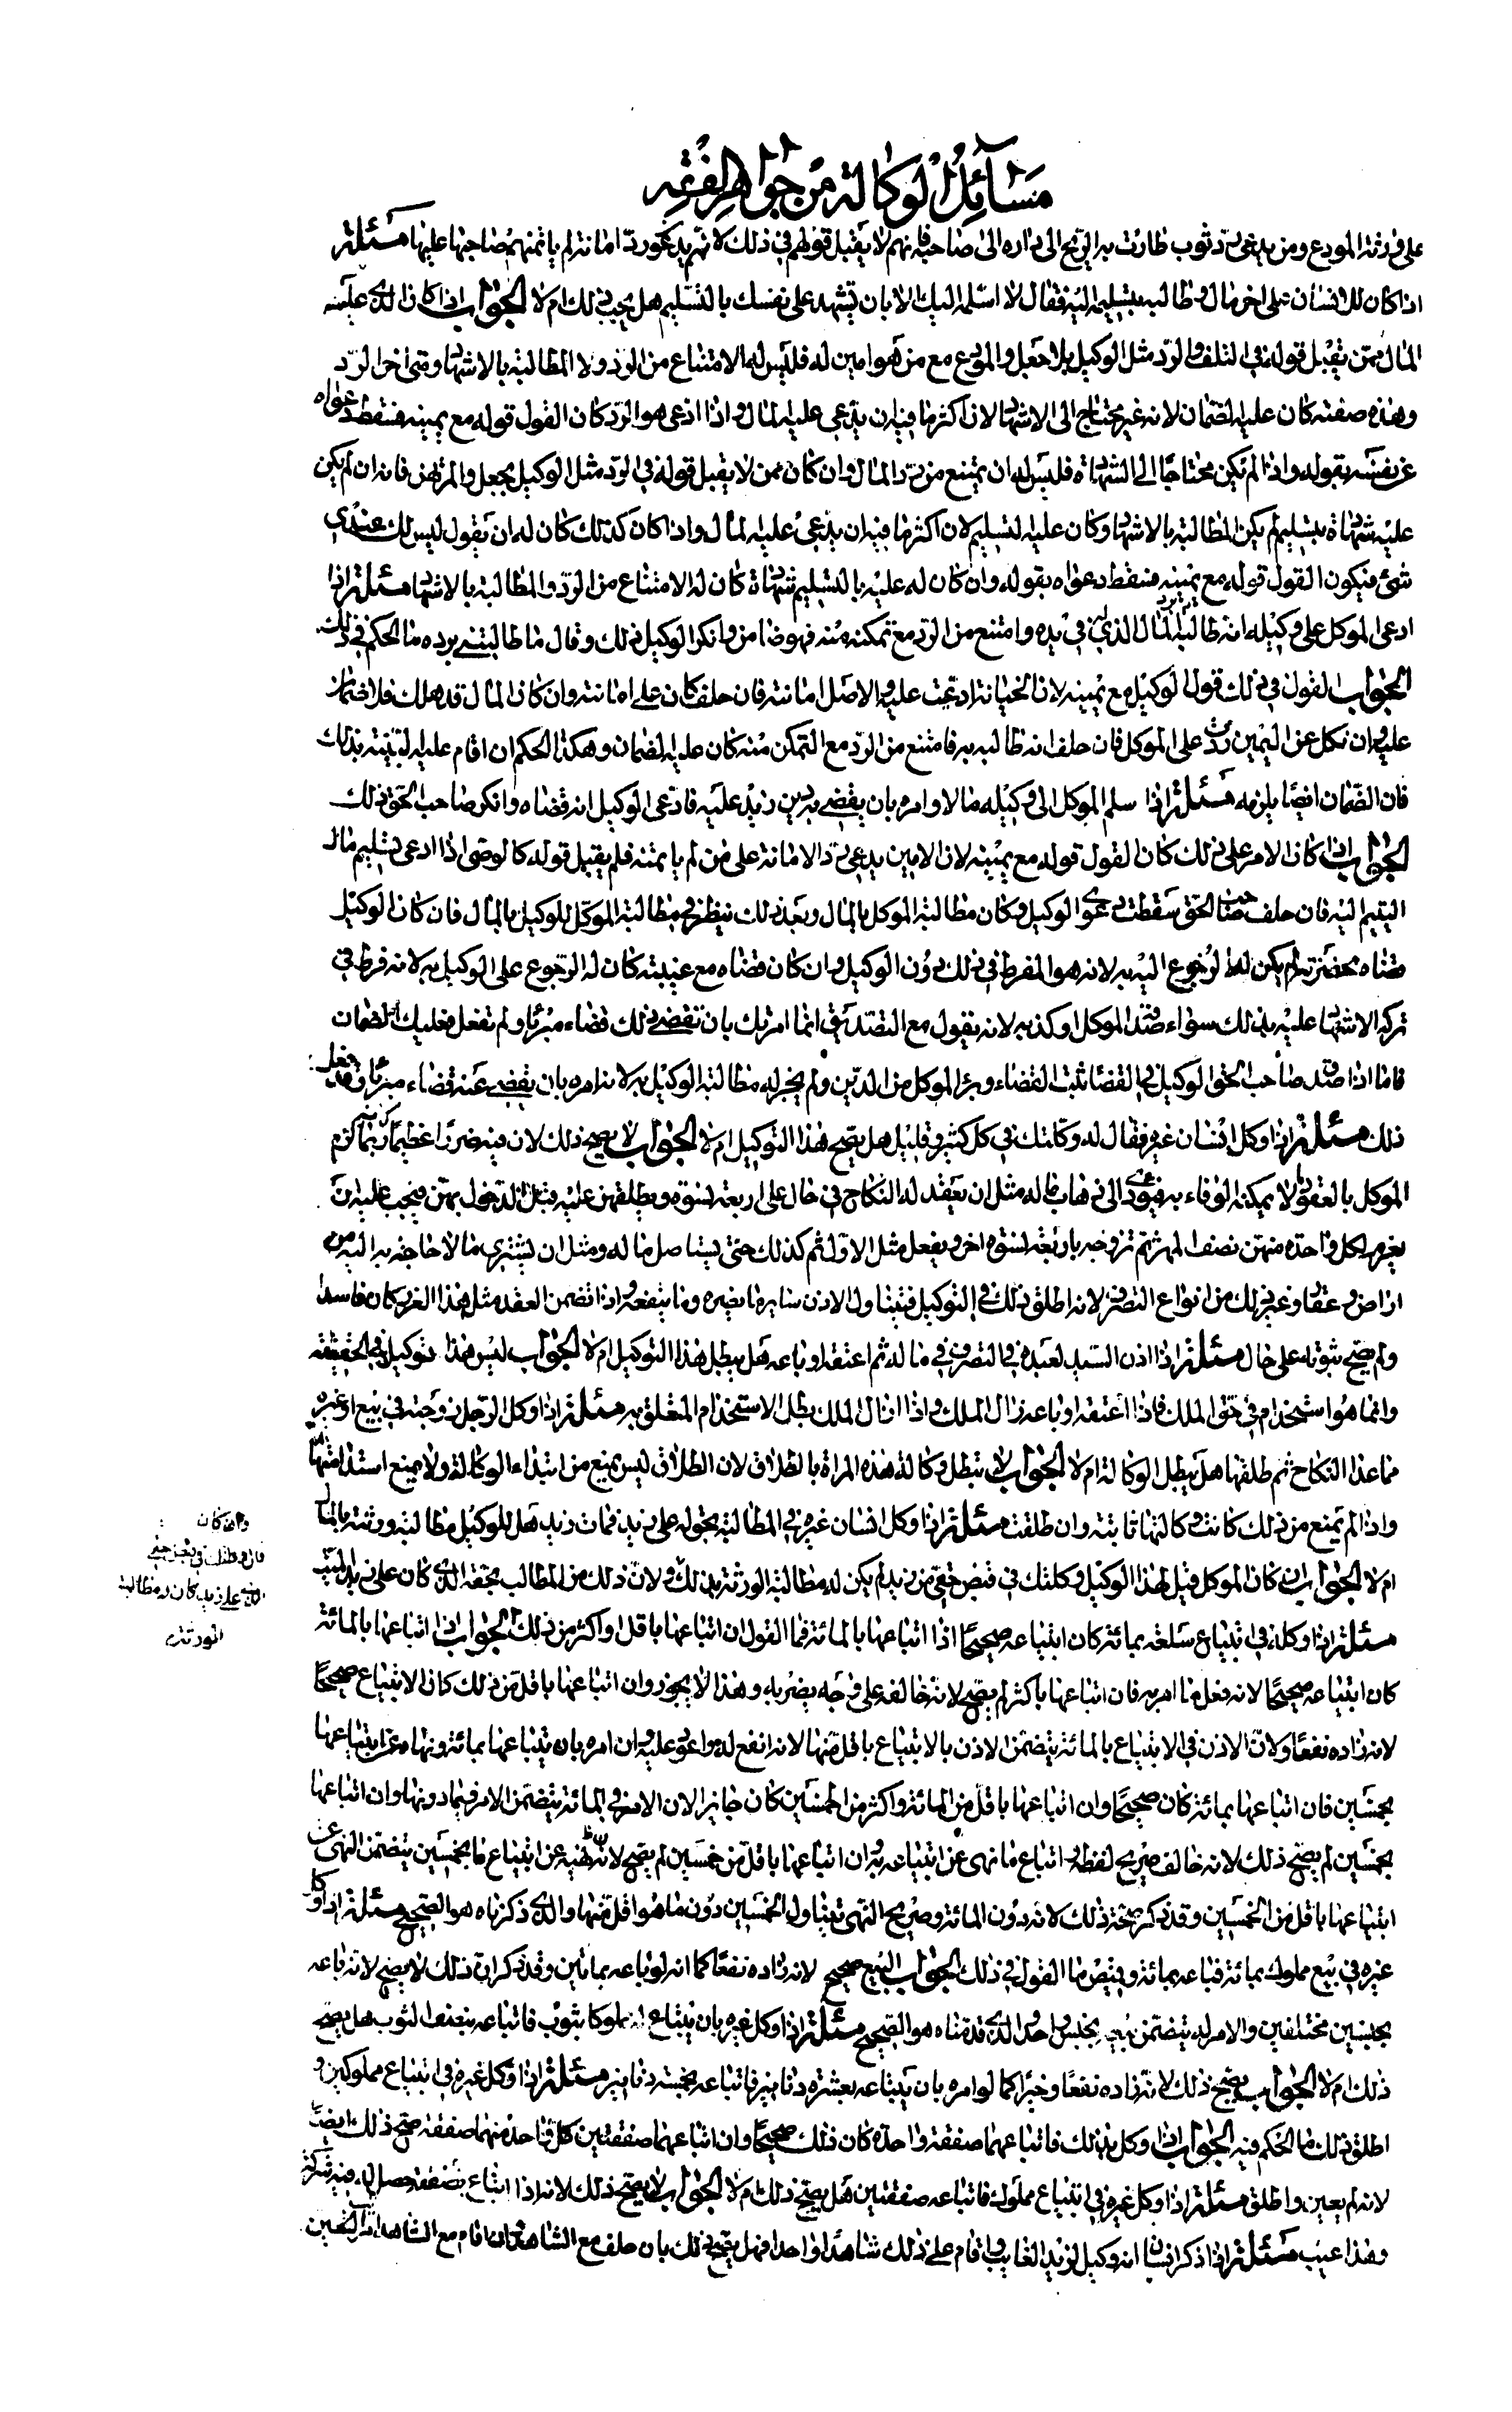 مسائل الوكالة من جواهر الفقه
على ورثة المودع ومن يدعى رد ثوب طارت به الريح الى داره الى صاحبه فانهم لا يقبل قولهم في ذلك لانهم يدعون رد امانة لم ياتمنهم صاحبها عليها مسئلة
اذا كان للانسان على اخر مال وطالبه بتسليمه اليه فقال لا اسلمه اليك الا بان تشهد على نفسك بالتسليم هل يجب ذلك ام لا الجواب اذا كان الذي عليه
المال ممن يقبل قوله في التلف والرد مثل الوكيل بلا جعل والمودع مع من هو امين له فليس له الامتناع من الرد ولا المطالبة بالاشهاد ومتى اخر الرد
وهذه صفته كان عليه الضمان لانه غير محتاج الى الاشهاد لان اكثر ما فيه ان يدعى عليه المال واذا ادعى هو الرد كان القول قوله مع يمينه فتسقط دعواه
عن نفسه بقوله واذا لم يكن محتاجا الى الشهادة فليس له ان يمتنع من رد المال وان كان ممن لا يقبل قوله في الرد مثل الوكيل بجعل والمرتهن فانه ان لم يكن
عليه شهادة بتسليم لم يكن المطالبة بالاشهاد وكان عليه التسليم لان اكثر ما فيه ان يدعى عليه المال واذا كان كذلك كان له ان يقول ليس لك عندي
شئ فيكون القول قوله مع يمينه فتسقط دعواه بقوله وان كان له عليه بالتسليم شهادة كان له الامتناع من الرد والمطالبة بالاشهاد مسئلة اذا
ادعى الموكل على وكيله انه طالبه برد المال الذي في يده وامتنع من الرد مع تمكنه منه فهو ضامن وانكر الوكيل ذلك وقال ما طالبتني برده ما الحكم في ذلك
الجواب القول في ذلك قول الوكيل مع يمينه لان الخيانة ادعت عليه والاصل امانته فان حلف كان على امانته وان كان المال قد هلك فلا ضمان
عليه وان نكل عن اليمين ردت على الموكل فان حلف انه طالبه به فامتنع من الرد مع التمكن منه كان عليه الضمان وهكذا الحكم ان اقام عليه البينة بذلك
فان الضمان ايضا يلزمه مسئلة اذا سلم الموكل الى وكيله مالا وامره بان يقضى به دين زيد عليه فادعى الوكيل انه قضاه وانكر صاحب الحق ذلك
الجواب اذا كان الامر على ذلك كان القول قوله مع يمينه لان الامين يدعى رد الامانة على من لم ياتمنه فلم يقبل قوله كالوصى اذا ادعى تسليم مال
اليتيم اليه فان حلف صاحب الحق سقطت دعوى الوكيل وكان مطالبة الموكل بالمال وبعد ذلك ينظر في مطالبة الموكل للوكيل بالمال فان كان الوكيل
قضاه بحضرته لم يكن له الرجوع اليه به لانه هو المفرط في ذلك دون الوكيل وان كان قضاه مع غيبته كان له الرجوع على الوكيل به لانه فرط في
تركه الاشهاد عليه بذلك سواء صدقه الموكل او كذبه لانه يقول مع التصديق انما امرتك بان تقضى ذلك قضاء مبرئا ولم تفعل فعليك الضمان
فاما اذا صدق صاحب الحق الوكيل في القضا ثبت القضاء وبرئ الموكل من الدين ولم يجز له مطالبة الوكيل به لانه امره بان يقضى عنه قضاء مبرئا وقد فعل
ذلك مسئلة اذا وكل انسان غيره فقال له وكلتك في كل كثير وقليل هل يصح هذا التوكيل ام لا الجواب لا يصح ذلك لان فيه ضررا عظيما لانه ربما لزم
الموكل بالعقود ما لا يمكنه الوفاء به فيؤدى الى ذهاب ماله مثل ان يعقد له النكاح في حال على اربعة نسوة ويطلقهن عليه قبل الدخول بهن فيجب عليه ان
يغرم لكل واحدة منهن نصف المهر ثم تزوجه باربعة نسوة اخر ويفعل مثل الاول ثم كذلك حتى يستاصل ماله ومثل ان يشتري مالا حاجة به اليه من
اراض وعقار وغير ذلك من انواع التصرف لانه اطلق ذلك في التوكيل فيتناول الاذن سائر ما يضره وما ينفعه واذا تضمن العقد مثل هذا الغرر كان فاسدا
ولم يصح ثبوته على حال مسئلة اذا اذن السيد لعبده في التصرف في ماله ثم اعتقه او باعه هل يبطل هذا التوكيل ام لا الجواب ليس هذا بتوكيل في الحقيقة
وانما هو استخدام في حق الملك فاذا اعتقه او باعه زال الملك واذا زال الملك بطل الاستخدام المتعلق به مسئلة اذا وكل الرجل زوجته في بيع او غيره
مما عدا النكاح ثم طلقها هل يبطل الوكالة ام لا الجواب لا تبطل وكالة هذه المراة بالطلاق لان الطلاق ليس يمنع من ابتداء الوكالة ولا يمنع استدامتها
واذا لم يمنع من ذلك كانت وكالتها ثابتة وان طلقت مسئلة اذا وكل انسان غيره في المطالبة بحق له على زيد فمات زيد هل للوكيل مطالبة ورثته بالمال
ام لا الجواب ان كان الموكل قيل لهذا الوكيل وكلتك في قبض حقى من زيد لم يكن له مطالبة الورثة بذلك ولان ذلك من المطالب بحقه الذي كان على زيد الميت
مسئلة اذا وكله في ابتياع سلعة بمائة كان ابتياعه صحيحا اذا ابتاعها بالمائة فما القول ان ابتاعها باقل او اكثر من ذلك الجواب اذا ابتاعها بالمائة
كان ابتياعه صحيحا لانه فعل ما امر به فان ابتاعها باكثر لم يصح لانه خالفه على وجه يضر به وهذا لا يجوز وان ابتاعها باقل من ذلك كان الابتياع صحيحا
لانه زاده نفعا ولان الاذن في الابتياع بالمائة يتضمن الاذن بالابتياع باقل منها لانه انفع له واعود عليه وان امره بان يبتاعها بمائة ونهاه عن ابتياعها
بخمسين فان ابتاعها بمائة كان صحيحا وان ابتاعها باقل من المائة واكثر من الخمسين كان جايزا لان الامر في المائة يتضمن الامر فيما دونها وان ابتاعها
بخمسين لم يصح ذلك لانه خالف صريح لفظه وابتاع ما نهى عن ابتياعه به وان ابتاعها باقل من خمسين لم يصح لان نهيه عن ابتياعها بخمسين يتضمن النهى عن
ابتياعها باقل من الخمسين وقد ذكر صحة ذلك لانه دون المائة وصريح النهى تناول الخمسين دون ما هو اقل منها والذي ذكرناه هو الصحيح مسئلة اذا وكل
غيره في بيع مملوك بمائة فباعه بمائة وقميص ما القول في ذلك الجواب البيع صحيح لانه زاده نفعا كما انه لو باعه بماتين وقد ذكر ان ذلك لا يصح لانه باعه
بجنسين مختلفين والامر له يتضمن بجنس واحد والذي قدمناه هو الصحيح مسئلة اذا وكل غيره بان يبتاع له مملوكا بثوب فابتاعه بنصف الثوب هل يصح
ذلك ام لا الجواب يصح ذلك لانه زاده نفعا وخيرا كما لو امره بان يبتاعه بعشرة دنانير فابتاعه بخمسة دنانير مسئلة اذا وكل غيره في ابتياع مملوكين و
اطلق ذلك ما الحكم فيه الجواب اذا وكل بذلك فابتاعهما صفقة واحدة كان ذلك صحيحا وان ابتاعهما صفقتين كل واحد منهما صفقة صح ذلك ايضا
لانه لم يعين واطلق مسئلة اذا وكل غيره في ابتياع مملوك فابتاعه صفقتين هل يصح ذلك ام لا الجواب لا يصح ذلك لانه اذا ابتاع نصفه حصل له فيه شركة
وهذا عيب مسئلة اذا ذكر انسان انه وكيل لزيد الغايب واقام على ذلك شاهدا واحدا فهل يصح ذلك بان حلف مع الشاهد او اقام مع الشاهد امراتين
وان كان
قال وكلتك في قبض حقي
الذي على زيد كان له مطالبة
الورثة